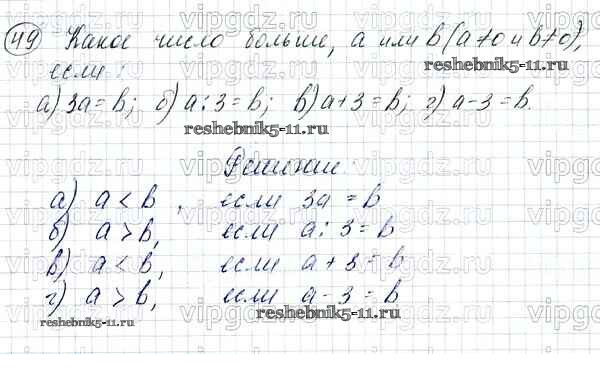 49 Какое число больше, a или b (a≠0 и b≠0),
если:
а) 3a = b; б) a : 3 = b; в) a + 3 = b; г) a - 3 = b.
reshebnik5-11.ru
Решение:
а) a < b, если 3a = b
б) a > b, если a : 3 = b
в) a < b, если a + 3 = b
г) a > b, если a - 3 = b
reshebnik5-11.ru
reshebnik5-11.ru
vipgdz.ru